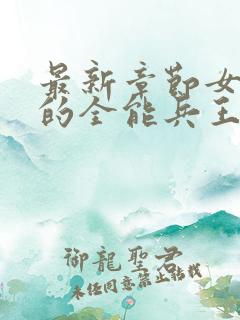 最新章節女
的全能兵王
御龍聖君
未经同意禁止转载